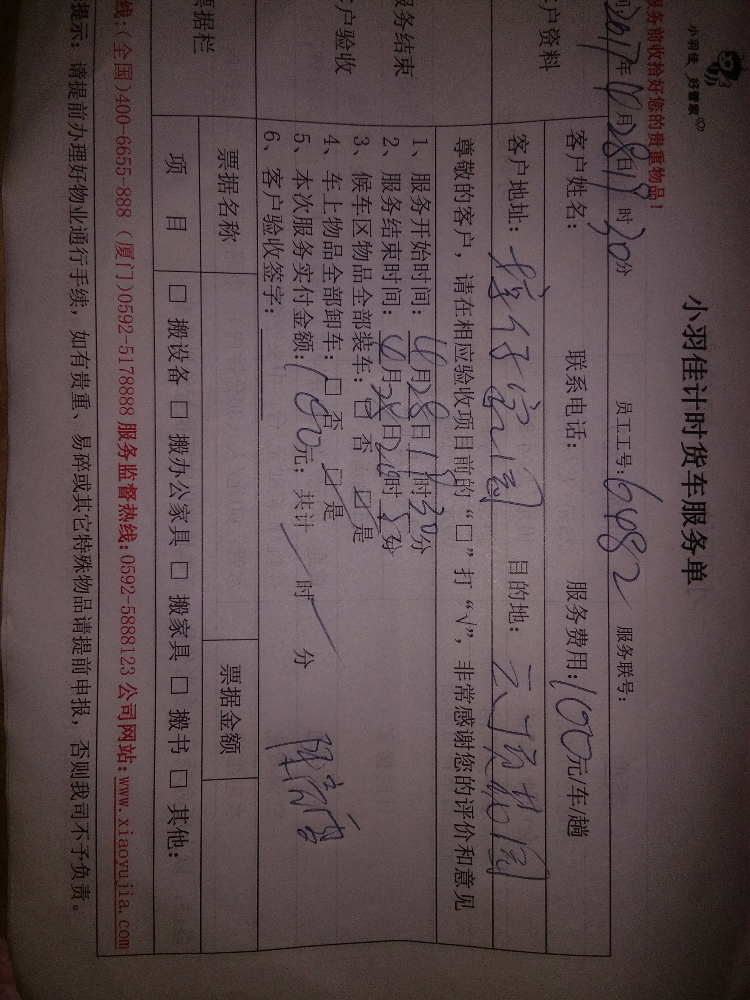 小羽佳 好管家
小羽佳计时货车服务单
服务前收拾好您的贵重物品!
员工工号: 6482 服务联号:
2017年10月28日19时30分
客户资料
客户姓名: 联系电话: 服务费用: 100元/车/趟
客户地址: 目的地:
尊敬的客户，请在相应验收项目前的“□”打“√”，非常感谢您的评价和意见
服务结束
客户验收
1、服务开始时间: 10月28日19时30分
2、服务结束时间: 10月28日20时 分
3、候车区物品全部装车: □ 否 □ 是
4、车上物品全部卸车: □ 否 □ 是
5、本次服务实付金额: 100元; 共计 时 分
6、客户验收签字:
票据栏
票据名称 票据金额
项 目 □ 搬设备 □ 搬办公家具 □ 搬家具 □ 搬书 □ 其他:
线:(全国)400-6655-888 (厦门)0592-5178888 服务监督热线:0592-5888123 公司网站:www.xiaoyujia.com
提示: 请提前办理好物业通行手续，如有贵重、易碎或其它特殊物品请提前申报，否则我司不予负责。